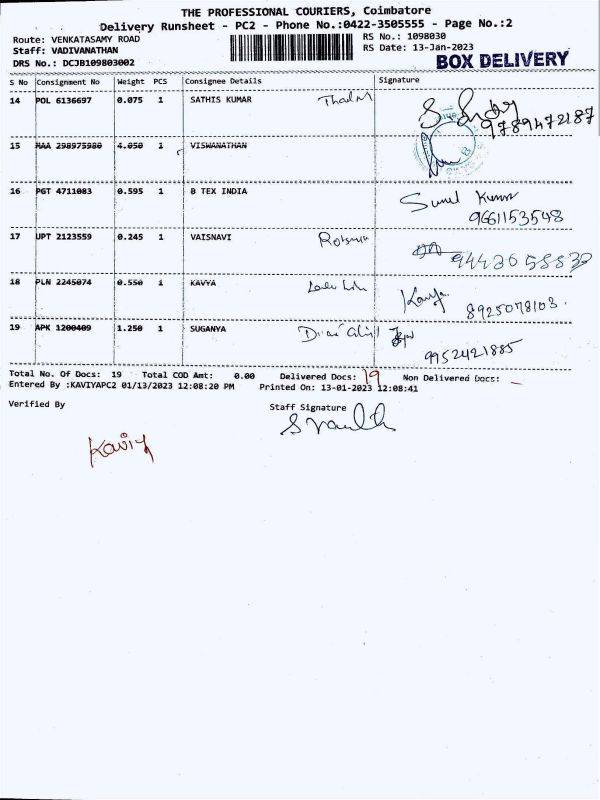 THE PROFESSIONAL COURIERS, Coimbatore
Delivery Runsheet - PC2 - Phone No.:0422-3505555 - Page No.:2
Route: VENKATASAMY ROAD RS No.: 1098030
Staff: VADIVANATHAN RS Date: 13-Jan-2023
DRS No.: DCJB109803002 BOX DELIVERY
S No Consignment No Weight PCS Consignee Details Signature
14 POL 6136697 0.075 1 SATHIS KUMAR
9789472187
15 MAA 298975980 4.050 1 VISWANATHAN
16 PGT 4711083 0.595 1 B TEX INDIA Sunil Kumar
9661153548
17 UPT 2123559 0.245 1 VAISNAVI
9443658830
18 PLN 2245074 0.550 1 KAVYA Kavya
8925078103.
19 APK 1200409 1.250 1 SUGANYA
9952421885
Total No. Of Docs: 19 Total COD Amt: 0.00 Delivered Docs: 19 Non Delivered Docs: -
Entered By :KAVIYAPC2 01/13/2023 12:08:20 PM Printed On: 13-01-2023 12:08:41
Verified By Staff Signature
Kaviy